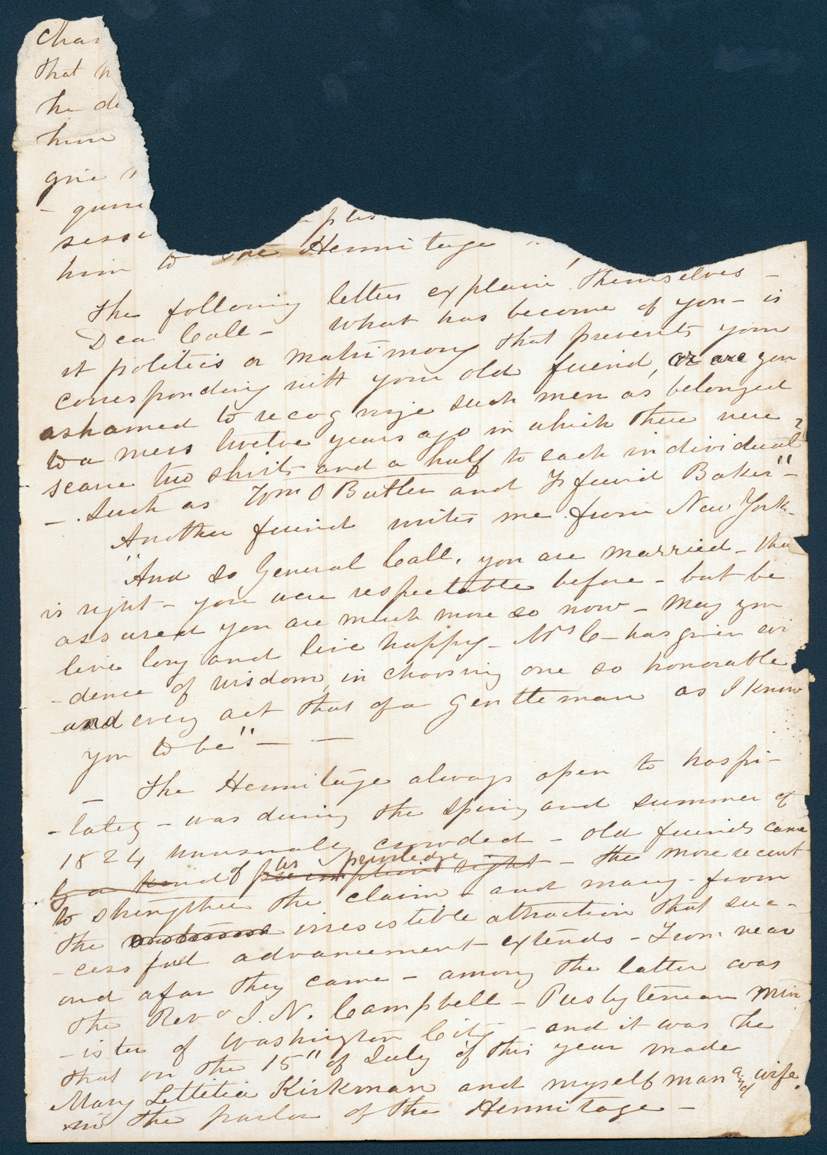 char
that
he de
him
give
- quire
sess
him to the Hermitage
The following letters explain themselves -
Dea Call - What has become of you - is
it politics or matrimony that prevents your
corresponding with your old friend, or are you
ashamed to recognize such men as belonged
to a mess twelve years ago in which there were
scarce two shirts and a half to each individual?
- Such as Wm O Butler and Yr friend Baker" -
Another friend writes me from New York -
"And so General Call, you are married - this
is right - you were respectable before - but be
assured you are much more so now - May you
live long and live happy - Mrs C - has given evi
- dence of wisdom in choosing one so honorable
and every act that of a gentleman as I know
you to be" - -
The Hermitage always open to hospi-
- tality - was during the spring and summer of
1824 unusually crowded - old friends came
by a kind of his privilege right - the more recent
to strengthen the claim - and many from
the irresistible attraction that suc-
- cessful advancement extends - From near
and afar they came - among the latter was
the Revd J. N. Campbell - Presbyterian Min
- ister of Washington City - and it was he
that on the 15" of July of this year made
Mary Lettitia Kirkman and myself man and wife.
in the parlor of the Hermitage -